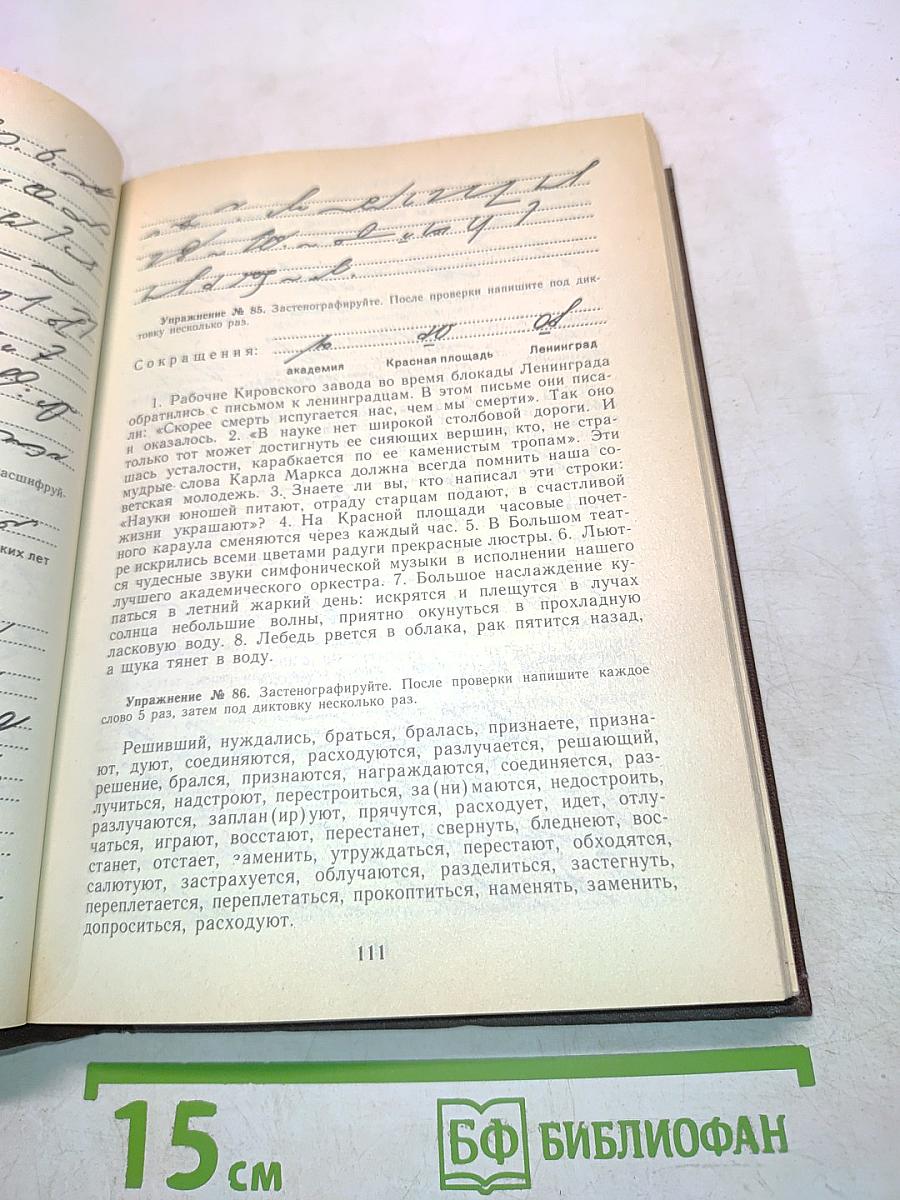 асшифруй-
ких лет
Упражнение № 85. Застенографируйте. После проверки напишите под дик-
товку несколько раз.
Сокращения:
академия Красная площадь Ленинград
1. Рабочие Кировского завода во время блокады Ленинграда
обратились с письмом к ленинградцам. В этом письме они писа-
ли: «Скорее смерть испугается нас, чем мы смерти». Так оно
и оказалось. 2. «В науке нет широкой столбовой дороги. И
только тот может достигнуть ее сияющих вершин, кто, не стра-
шась усталости, карабкается по ее каменистым тропам». Эти
мудрые слова Карла Маркса должна всегда помнить наша со-
ветская молодежь. 3. Знаете ли вы, кто написал эти строки:
«Науки юношей питают, отраду старцам подают, в счастливой
жизни украшают»? 4. На Красной площади часовые почет-
ного караула сменяются через каждый час. 5. В Большом теат-
ре искрились всеми цветами радуги прекрасные люстры. 6. Льют-
ся чудесные звуки симфонической музыки в исполнении нашего
лучшего академического оркестра. 7. Большое наслаждение ку-
паться в летний жаркий день: искрятся и плещутся в лучах
солнца небольшие волны, приятно окунуться в прохладную
ласковую воду. 8. Лебедь рвется в облака, рак пятится назад,
а щука тянет в воду.
Упражнение № 86. Застенографируйте. После проверки напишите каждое
слово 5 раз, затем под диктовку несколько раз.
Решивший, нуждались, браться, бралась, признаете, призна-
ют, дуют, соединяются, расходуются, разлучается, решающий,
решение, брался, признаются, награждаются, соединяется, раз-
лучиться, надстроют, перестроиться, за(ни)маются, недостроить,
разлучаются, заплан(ир)уют, прячутся, расходует, идет, отлу-
чаться, играют, восстают, перестанет, свернуть, бледнеют, вос-
станет, отстает, заменить, утруждаться, перестают, обходятся,
салютуют, застрахуется, облучаются, разделиться, застегнуть,
переплетается, переплетаться, прокоптиться, наменять, заменить,
допроситься, расходуют.
111
15 см
БФ БИБЛИОФАН